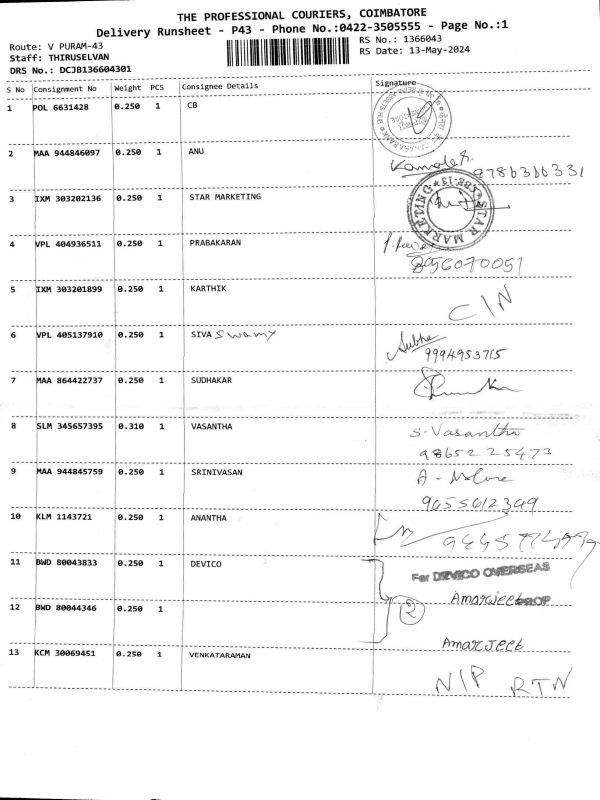 THE PROFESSIONAL COURIERS, COIMBATORE
Delivery Runsheet - P43 - Phone No.:0422-3505555 - Page No.:1
Route: V PURAM-43 RS No.: 1366043
Staff: THIRUSELVAN RS Date: 13-May-2024
DRS No.: DCJB136604301
S No Consignment No Weight PCS Consignee Details Signature
1 POL 6631428 0.250 1 CB
CANARA BANK
2 MAA 944846097 0.250 1 ANU
Kamala
3 IXM 303202136 0.250 1 STAR MARKETING
STAR MARKETING
4 VPL 404936511 0.250 1 PRABAKARAN
8956070051
5 IXM 303201899 0.250 1 KARTHIK C/N
6 VPL 405137910 0.250 1 SIVA Swamy Subha
9994953715
7 MAA 864422737 0.250 1 SUDHAKAR
8 SLM 345657395 0.310 1 VASANTHA S. Vasantha
9865225473
9 MAA 944845759 0.250 1 SRINIVASAN
9655612349
10 KLM 1143721 0.250 1 ANANTHA
11 BWD 80043833 0.250 1 DEVICO For DEVICO OVERSEAS
Amarjeet PROP
12 BWD 80044346 0.250 1 2
Amarjeet
13 KCM 30069451 0.250 1 VENKATARAMAN N/P RTN